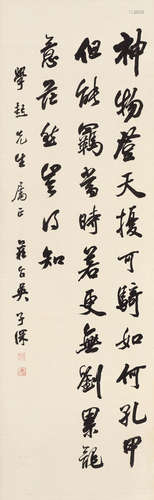 神物登天擾可騎如何孔甲
但能羈當時若更無劉累龍
意茫然豈得知
學超先生屬正 蘇台吳子深